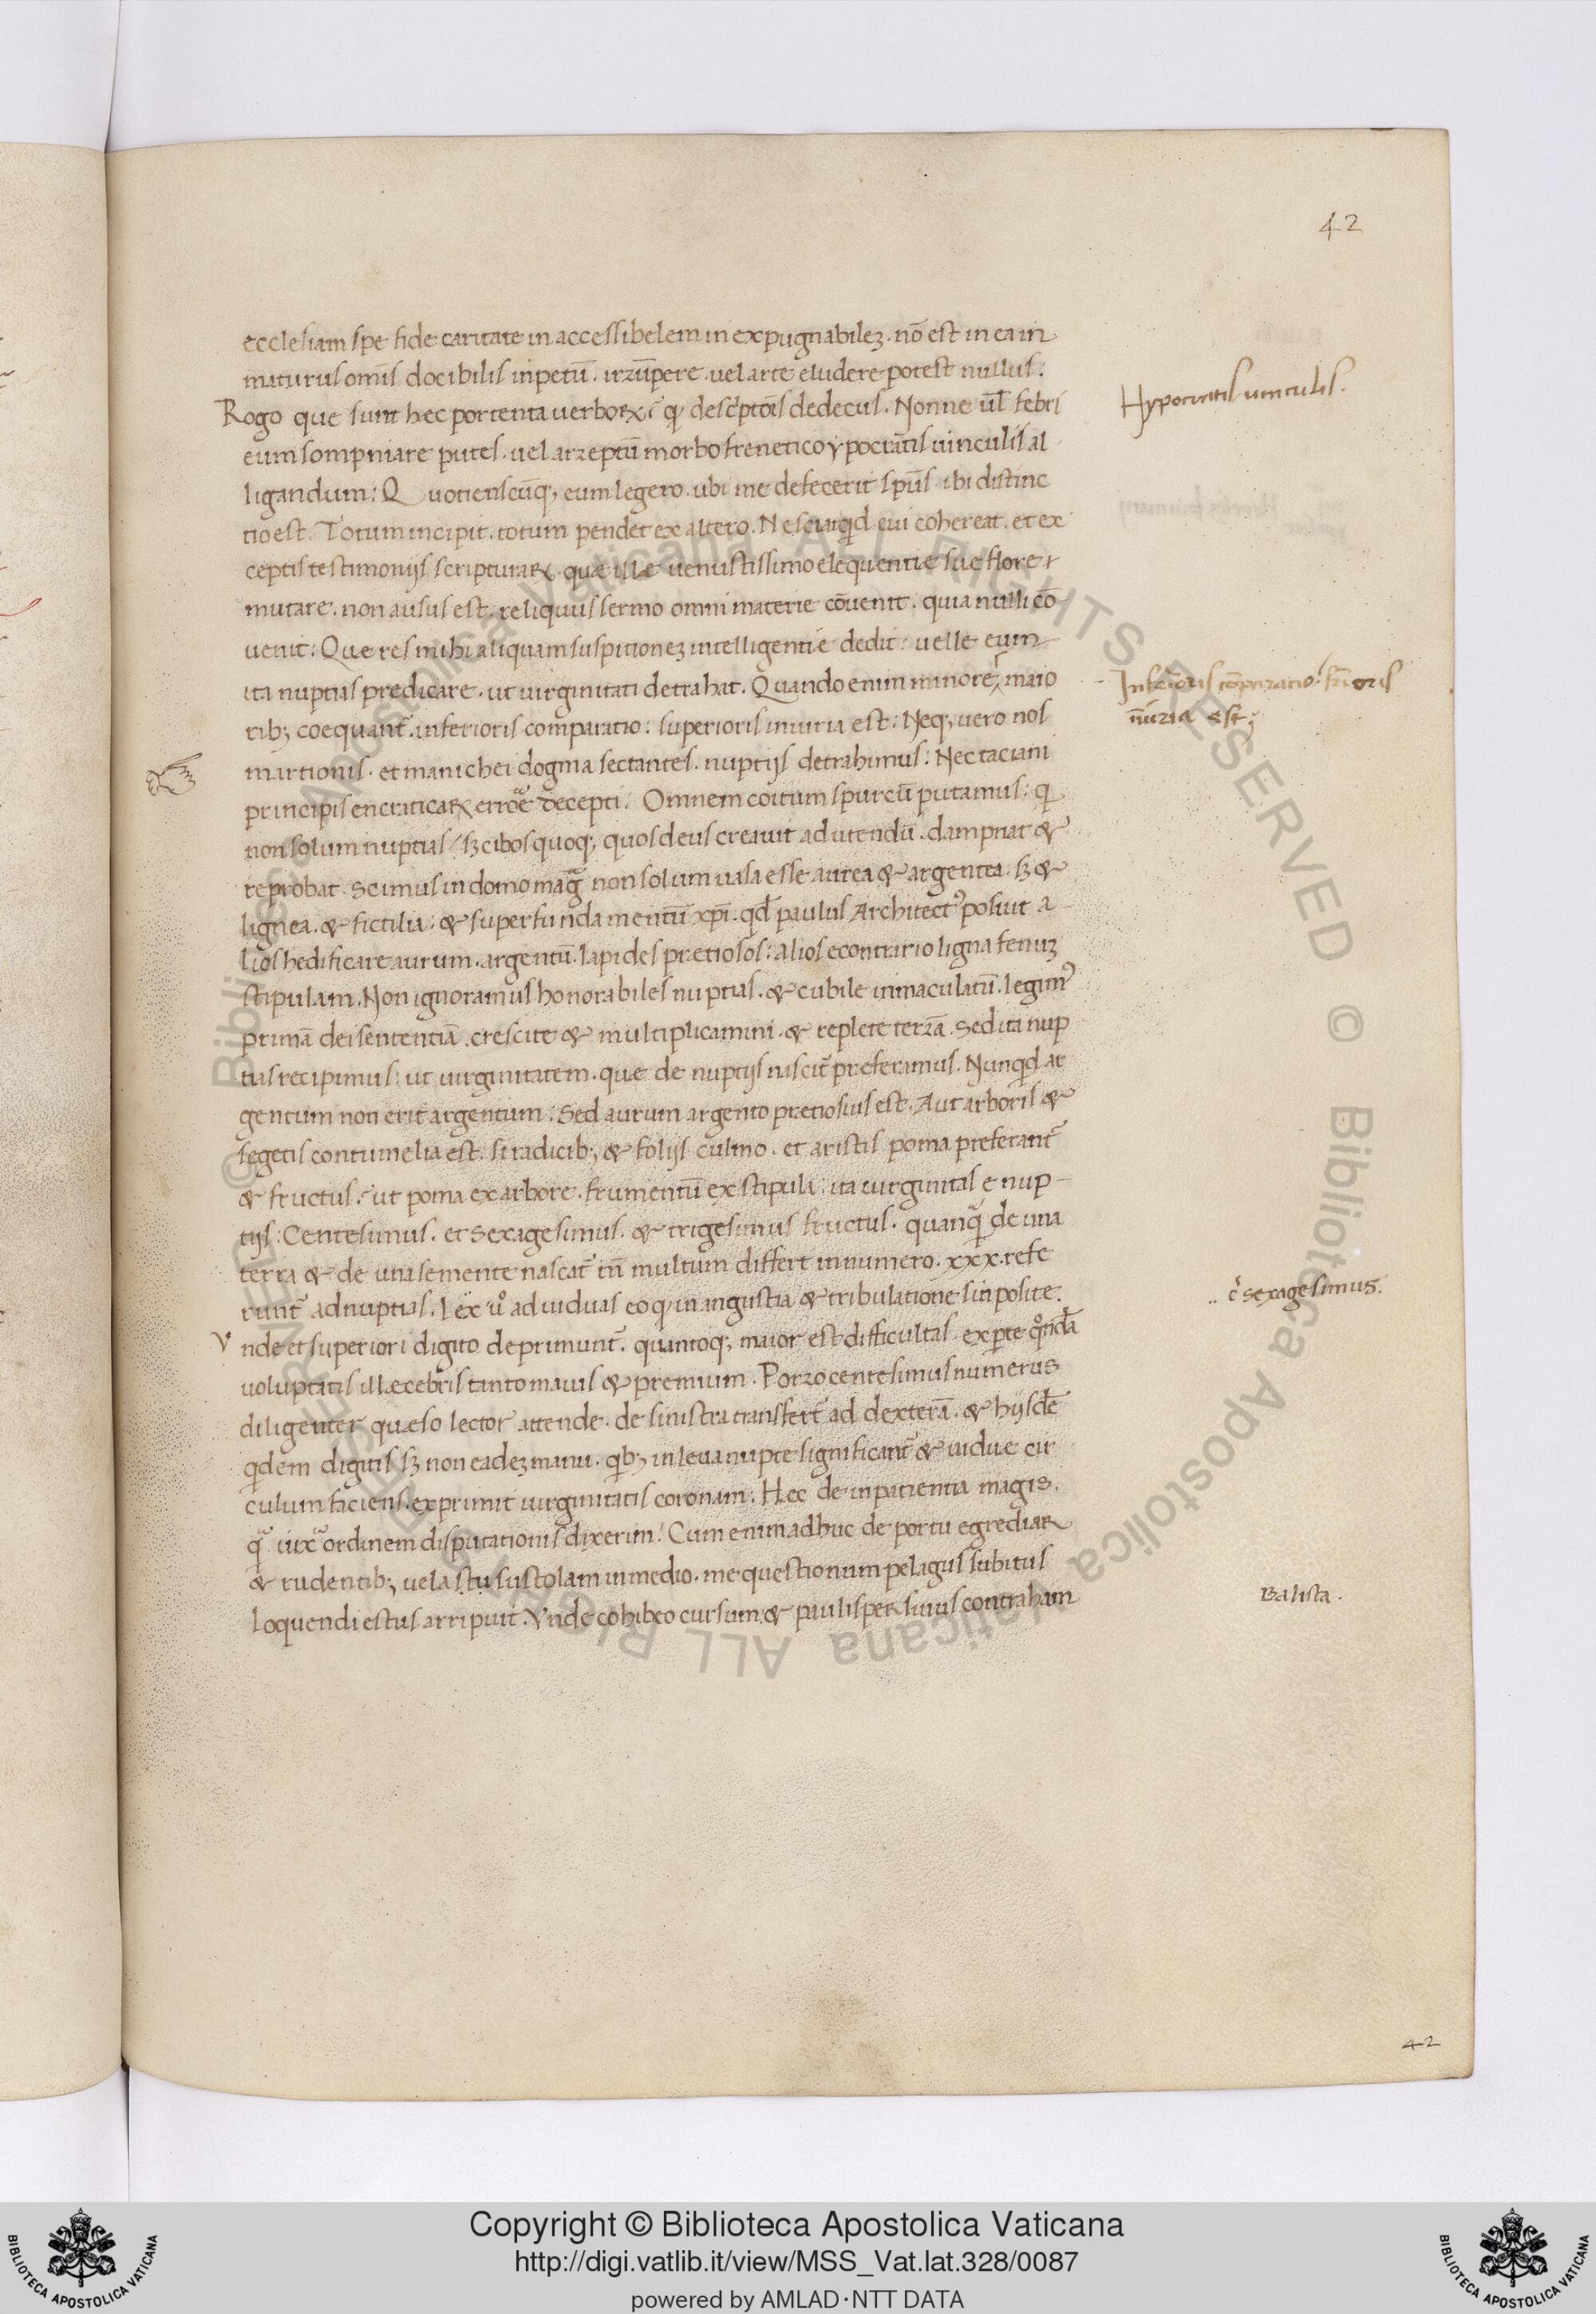 42
ecclesiam spe fide caritate in accessibelem in expugnabileʒ . nō est in ea in
maturus omīs docibilis inpetū . irrūpere . vel arte eludere potest nullus :
Rogo que sunt hec portenta uerboꝝ : qͥ descͥptoīs dedecus . Nonne ul̄ febri
eum sompniare putes . vel arreptū morbo frenetico ypocratis uinculis al
ligandum : Quotienscūqʒ eum legero . ubi me defecerit spūs ibi distinc
tio est . Totum incipit . totum pendet ex altero . Nesciat qͥd cui cohereat . et ex
ceptis testimonijs scripturaꝝ . que ille uenustissimo eloquentie sue flore
mutare . non ausus est . reliquus sermo omni materie cōuenit . quia nulli cō
uenit : Que res mihi aliquam suspitioneʒ intelligentie dedit : uelle eum
ita nuptias predicare . ut uirginitati detrahat . Quando enim minore maio
ribʒ coequant̄ . inferioris comparatio : superioris iniuria est : Neqʒ uero nos
martionis . et manichei dogma sectantes . nuptijs detrahimus : Nec taciani
principis encraticaꝝ errore decepti : Omnem coitum spurcū putamus : qͥ
non solum nuptias / sʒ cibos quoqʒ quos deus creauit ad utendū . dampnat &
reprobat . Scimus in domo magͣ non solum uasa esse aurea & argentea . sʒ &
lignea . & fictilia . & super fundamentū xp̄i . qd̄ paulus Architectꝰ posuit a
lios hedificare aurum . argentū . lapides pretiosos : alios econtrario ligna fenuʒ
stipulam . Non ignoramus honorabiles nuptias . & cubile inmaculatū . legimꝰ
primā dei sententiā . crescite & multiplicamini . & replete terrā . Sed ita nup
tias recipimus : ut uirginitatem . que de nuptijs nascit̄ preferamus . Nunqͥd ar
gentum non erit argentum : Sed aurum argento pretiosius est . Aut arboris &
segetis contumelia est . si radicibʒ & folijs culmo . et aristis poma preferant̄
& fructus . ut poma ex arbore . frumentū ex stipula : ita uirginitas e nup
tijs : Centesimus . et sexagesimus . & trigesimus fructus . quanqͣ de una
terra & de una semente nascat̄ tn̄ multum differt in numero . xxx . refe
runt̄ ad nuptias . Lx uº ad uiduas eo qͥ in angustia & tribulatione sin posite .
Vnde et superiori digito deprimunt̄ . quantoqʒ maior est difficultas experte qͦndā
uoluptatis illæcebris tanto maius & premium . Porro centesimus numerus
diligenter quæso lector attende . de sinistra transfert̄ ad dexterā . & hijsdē
qͥdem digitis sʒ non eadeʒ manu . qͥbʒ in leua nupte significant̄ & uidue cir
culum faciens . exprimit uirginitatis coronam : Hec de inpatientia magis .
qͣ iuxͣ ordinem disputationis dixerim : Cum enim adhuc de portu egrediaꝝ
& rudentibʒ uela
loquendi estus arripuit . Vnde cohibeo cursum . & paulisper sinus contraham
Hypocratis uinculis .
Inferioris cōparatio
iniuria est ;
sexagesimus .
Balista .
42
Copyright © Biblioteca Apostolica Vaticana
http://digi.vatlib.it/view/MSS_Vat.lat.328/0087
powered by AMLAD·NTT DATA
BIBLIOTECA APOSTOLICA VATICANA
BIBLIOTECA APOSTOLICA VATICANA